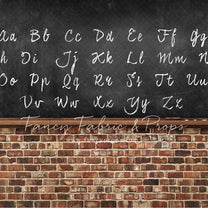 Aa Bb Cc Dd Ee Ff Gg
Hh Ii Jj Kk Ll Mm Nn
Oo Pp Qq Rr Ss Tt Uu
Vv Ww Xx Yy Zz
Tancy Fabric & Props